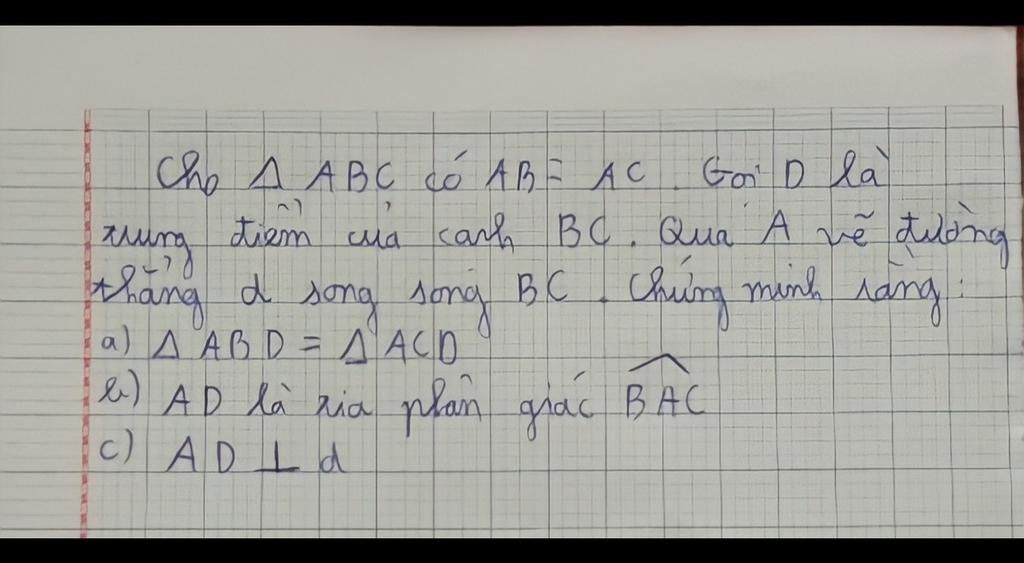 Cho Δ ABC có AB = AC. Gọi D là
trung điểm của cạnh BC. Qua A vẽ đường
thẳng d song song BC. Chứng minh rằng:
a) Δ ABD = Δ ACD
b) AD là tia phân giác \widehat{BAC}
c) AD ⊥ d